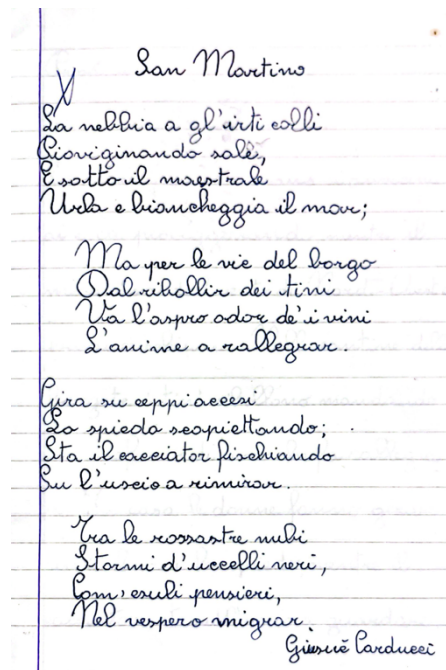 San Martino
La nebbia a gl'irti colli
Piovigginando sale,
E sotto il maestrale
Urla e biancheggia il mar;
Ma per le vie del borgo
Dal ribollir dei tini
Va l'aspro odor de' i vini
L'anime a rallegrar.
Gira su ceppi accesi
Lo spiedo scopiettando;
Sta il cacciator fischiando
Su l'uscio a rimirar.
Tra le rossastre nubi
Stormi d'uccelli neri,
Com' esuli pensieri,
Nel vespero migrar
Giosuè Carducci